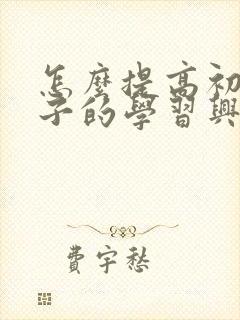 怎麼提高初
子的學習興
費宇愁